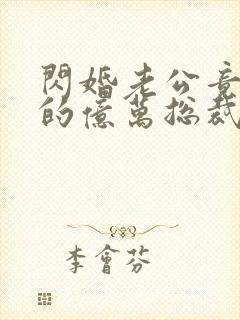 閃婚老公竟
的億萬總裁
李會芬